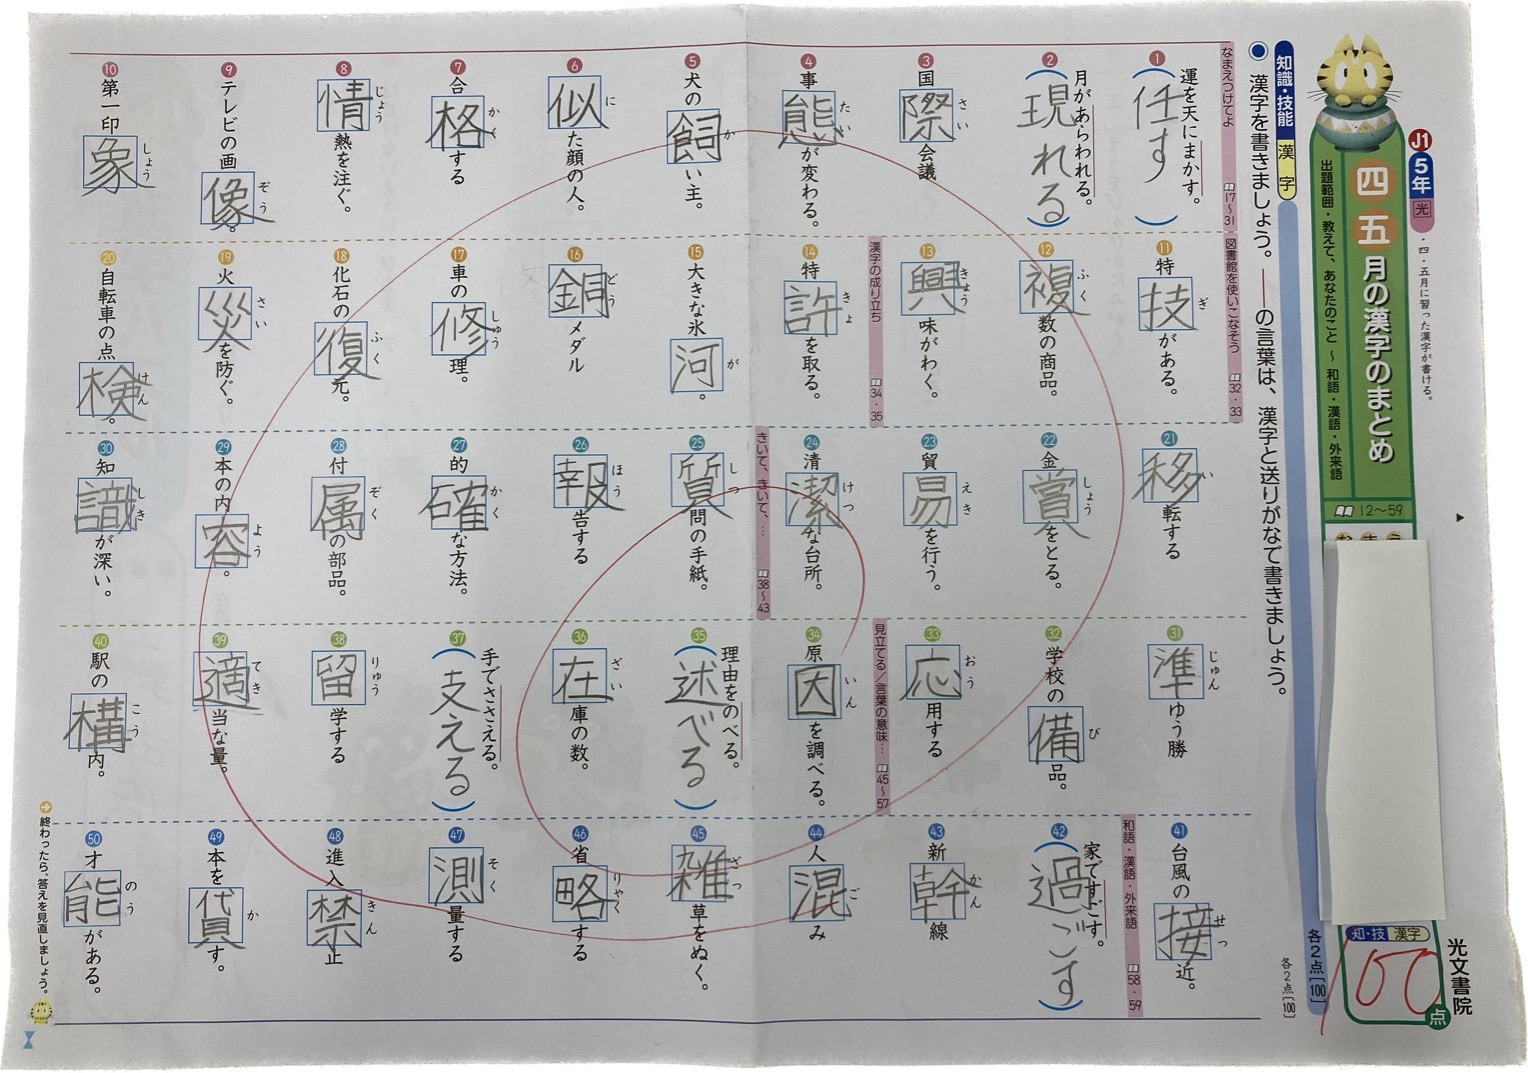 光文書院
J1 5年 光
・四・五月に習った漢字が書ける。
四五月の漢字のまとめ
出題範囲・教えて、あなたのこと ～ 和語・漢語・外来語
12～59
知・技 漢字
100点
各2点〔100〕
知識・技能 漢字
各2点〔100〕
● 漢字を書きましょう。――の言葉は、漢字と送りがなで書きましょう。
なまえつけてよ 17～31
1 運を天にまかす。(任す)
2 月があらわれる。(現れる)
3 国際会議 さい
4 事態が変わる。 たい
5 犬の飼い主。 か
6 似た顔の人。 に
7 合格する かく
8 情熱を注ぐ。 じょう
9 テレビの画像。 ぞう
10 第一印象 しょう
図書館を使いこなそう 32・33
11 特技がある。 ぎ
12 複数の商品。 ふく
13 興味がわく。 きょう
漢字の成り立ち 34・35
14 特許を取る。 きょ
15 大きな氷河。 が
16 銅メダル どう
17 車の修理。 しゅう
18 化石の復元。 ふく
19 火災を防ぐ。 さい
20 自転車の点検。 けん
21 移転する い
22 金賞をとる。 しょう
23 貿易を行う。 えき
24 清潔な台所。 けつ
きいて、きいて、… 38～43
25 質問の手紙。 しつ
26 報告する ほう
27 的確な方法。 かく
28 付属の部品。 ぞく
29 本の内容。 よう
30 知識が深い。 しき
31 準ゆう勝 じゅん
32 学校の備品。 び
33 応用する おう
見立てる／言葉の意味… 45～57
34 原因を調べる。 いん
35 理由をのべる。(述べる)
36 在庫の数。 ざい
37 手でささえる。(支える)
38 留学する りゅう
39 適当な量。 てき
40 駅の構内。 こう
41 台風の接近。 せっ
和語・漢語・外来語 58・59
42 家ですごす。(過ごす)
43 新幹線 かん
44 人混み ご
45 雑草をぬく。 ざっ
46 省略する りゃく
47 測量する そく
48 進入禁止 きん
49 本を貸す。 か
50 才能がある。 のう
終わったら、答えを見直しましょう。